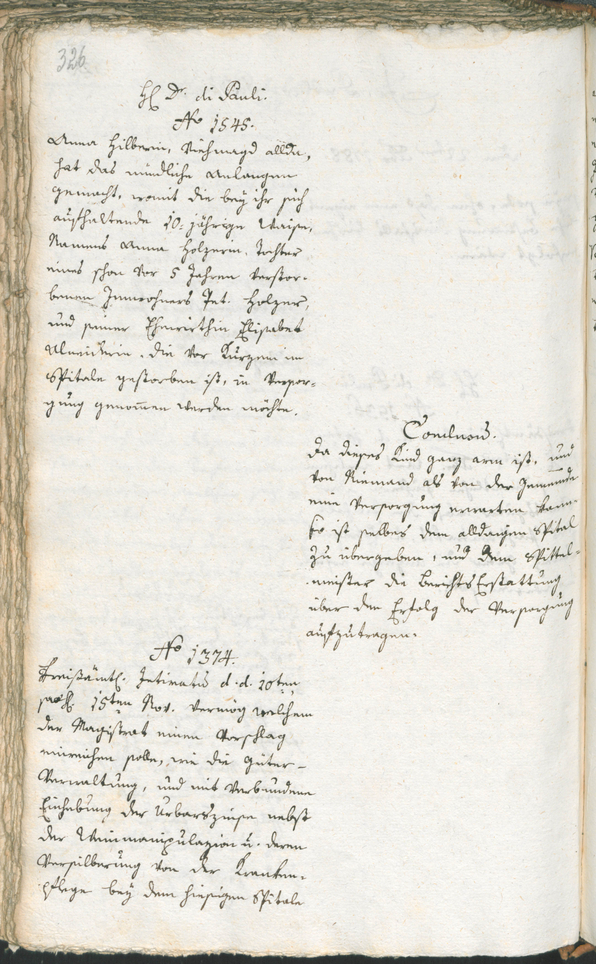 326
H. Dr. di Pauli.
No 1545.
Anna Hilberin, Viehmagd allda,
hat das mündliche Anlangen
gemacht, womit die bey ihr sich
aufhaltende 10. jährige Waise,
Namens Anna Holzerin, Tochter
eines schon vor 5 Jahren verstor-
benen Innwohners Pet. Holzer,
und seiner Ehewirthin Elisabet
die vor Kurzem im
Spitale gestorben ist, in Versor-
gung genom̄en werden möchte.
Conclusum.
Da dieses Kind ganz arm ist, und
von Niemand als von der Gemeinde
eine Versorgung erwarten kann
so ist selbes dem alldaigen Spital
zu übergeben, und dem Spittel-
meister die Berichts Erstattung
über den Erfolg der Versorgung
aufzutragen.
No 1374.
Kreisämtl. Intimatum d. d. 10ten
15ten Nov. vermög welchem
der Magistrat einen Vorschlag
einreichen solle, wie die Güter-
Verwaltung, und mit verbundene
Einhebung der Urbarszinse nebst
der Weinmanipulazion u. deren
Versilberung von der Kranken-
pflege bey dem hiesigen Spitale